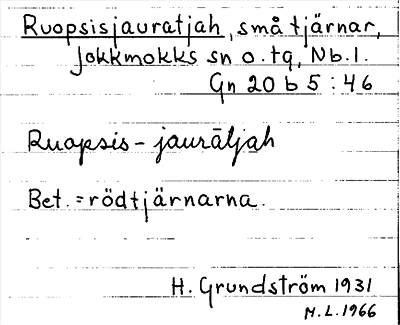 Ruopsisjauratjah, små tjärnar,
Jokkmokks sn o. tg, Nb. l.
Gn 20 b 5 : 46
Ruopsis - jaurāljah
Bet. = rödtjärnarna.
H. Grundström 1931
M. L. 1966